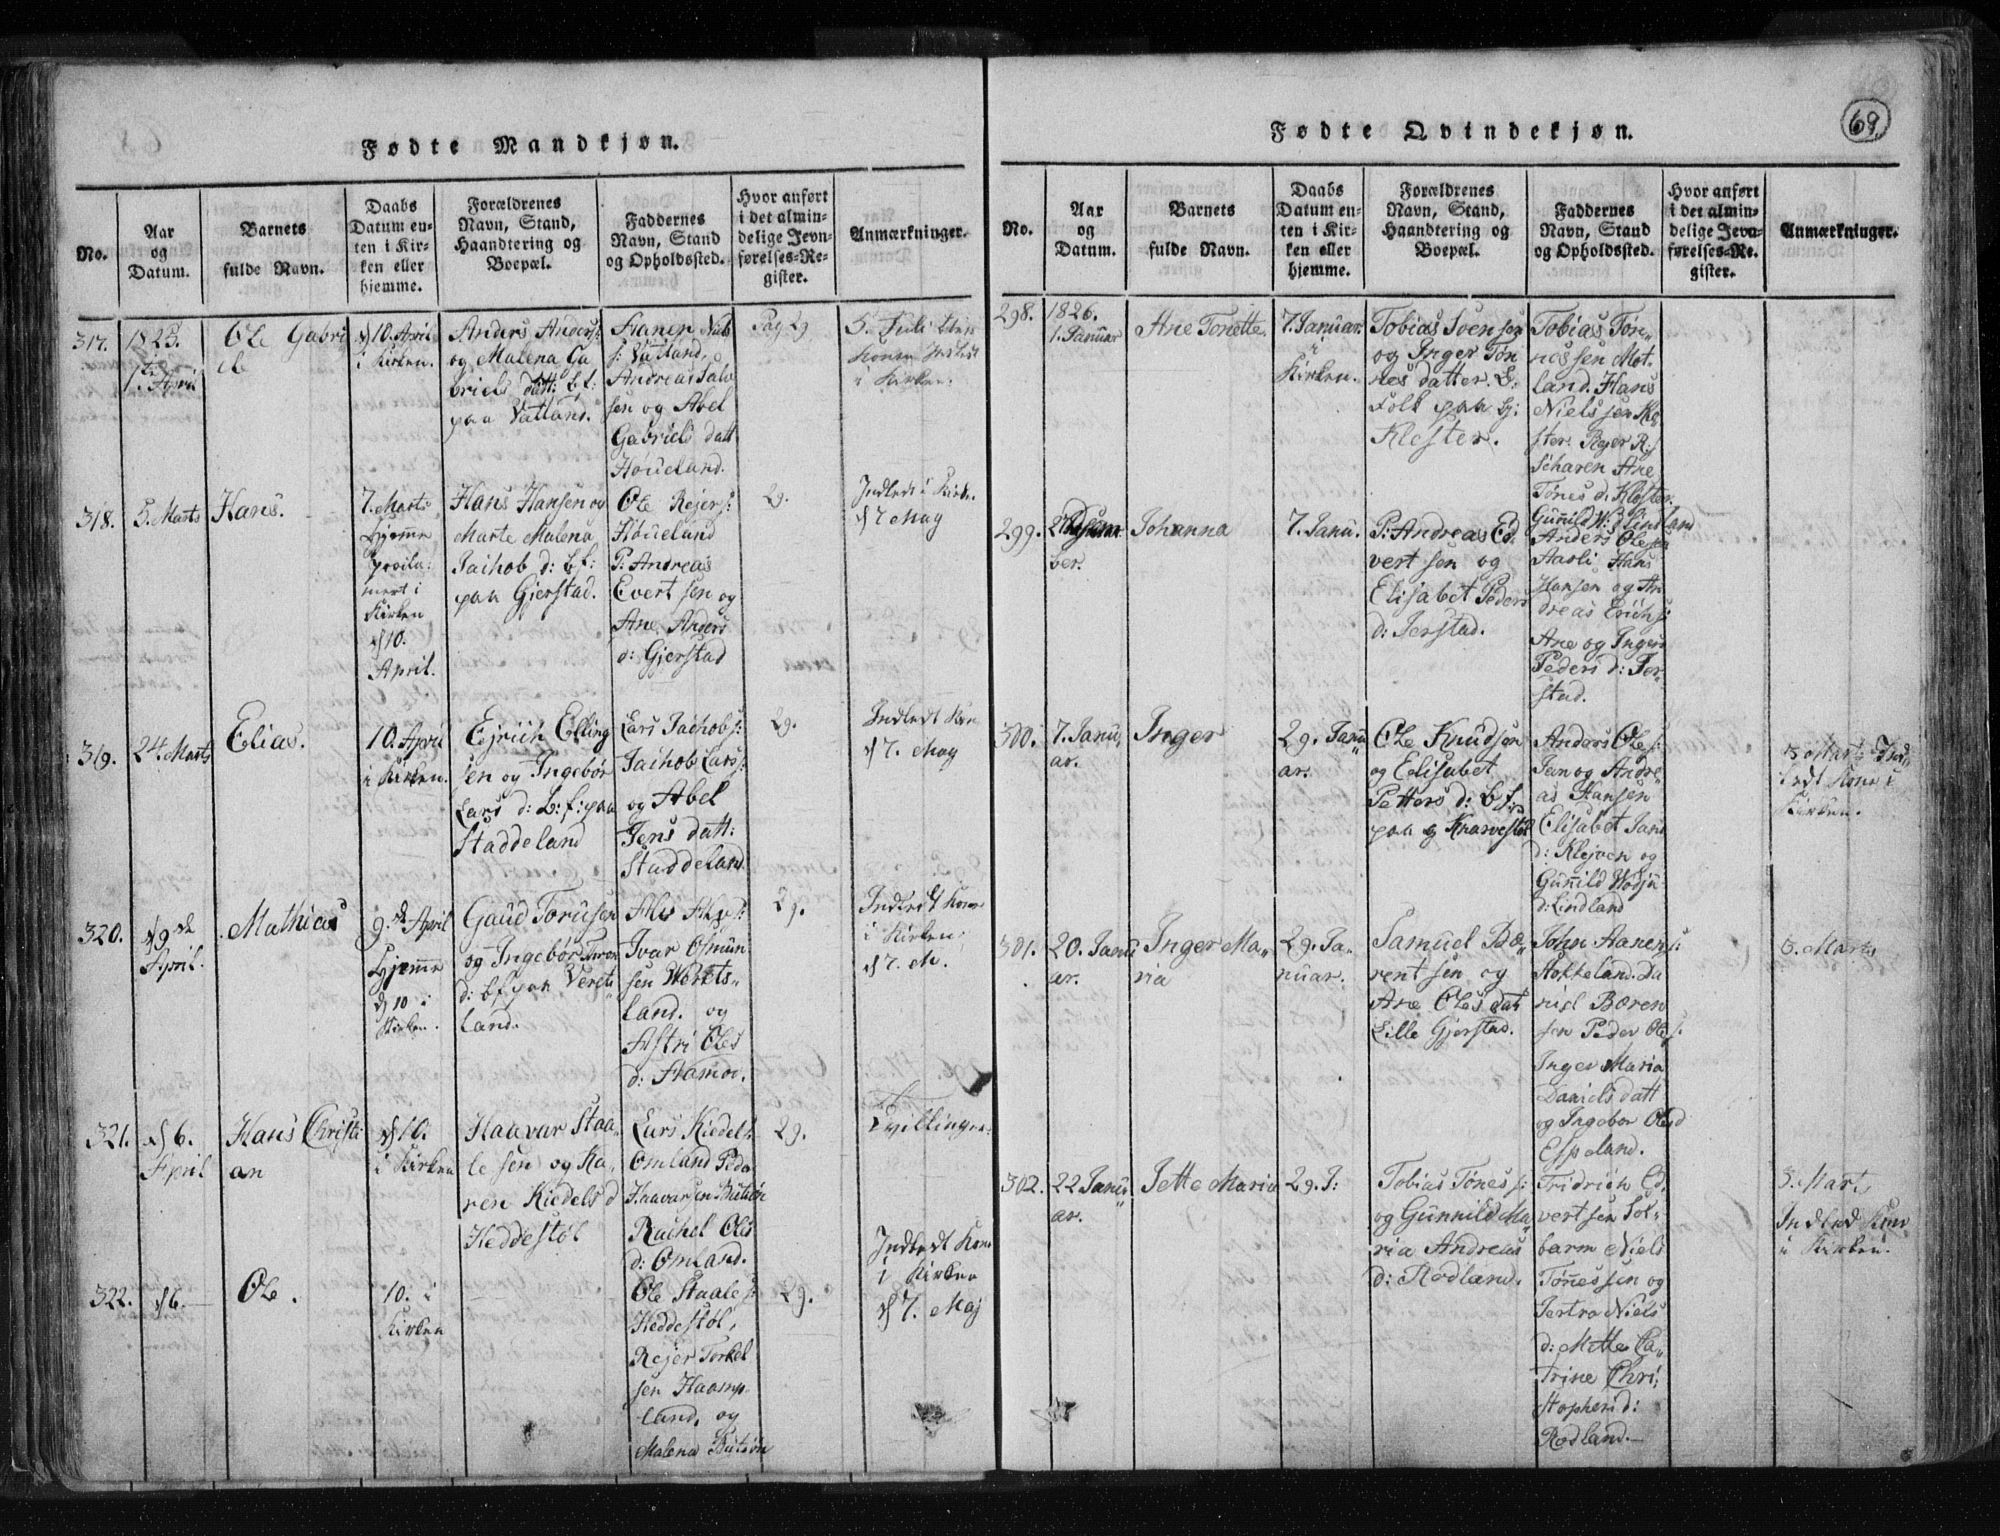 69.
Fødte Mandkjøn.
No.
Aar
og
Datum.
Barnets
fulde Navn.
Daabs
Datum en-
ten i Kir-
ken eller
hjemme.
Forældrenes
Navn, Stand,
Haandtering og
Boepæl.
Faddernes
Navn, Stand
og Opholdssted.
Hvor anført
i det almin-
delige Jevn-
førelses-Re-
gister.
Anmærkninger.
317.
April
Ole Gabri
el
10. April
i Kirken.
Anders Anders:
og Malena Ga
briels datt: b: f:
paa Vatland.
Aanen Niels
s: Vatland,
Andreas
sen og Abel
Gabriels datt
Høueland.
Pag 29
5. Juli
i Kirken.
318.
5. Marts
Hans.
7. Marts
Hjemme
i
Kirken
d 10.
April.
Hans Hansen og
Marte Malena
Jachob d: b: f:
paa Gjerstad.
Ole Rejers:
Høueland
P: Andreas
Evert sen og
Ane Anders
d: Gjerstad
29.
Indledt i Kirken
d 7 May
319.
24. Marts
Elias.
10. April
i Kirken.
Ejrich Elling
sen og Ingebor
Lars d: b: f: paa
Staddeland
Lars Jachobs:
Jachob Lars:
og Abel
Jens datt:
Staddeland
29.
Indledt Kon
d 7. May
320.
d 9de
April.
Mathias
9de April
Hjemme
d 10 i
Kirken.
Gaud Torusen
og Ingebor
d: b: f: paa Verets
land.
Ivar Osmun
sen Werets
land. og
Astri Oles
d: Aamot.
29.
Indledt Kone
i Kirken.
d 7. M.
321.
d 6.
April
Hans Christi
an
d 10.
i Kirken
Haavar Staa
le sen og Ka
ren Kiedels d
Heddestøl
Lars Kiedels:
Omland Peder
Haavarsen
Rachel Oles
d: Omland.
29.
Tvillinger.
322.
d 6.
Ole.
10. i
Kirken
Ole Staales:
Heddestøl,
Rejer Torkel
sen Haamp
land, og
Malena
29.
Indledt Kone
i Kirken
d 7. Maj
Fødte Qvindekjøn.
No.
Aar
og
Datum.
Barnets
fulde Navn.
Daabs
Datum en-
ten i Kir-
ken eller
hjemme.
Forældrenes
Navn, Stand,
Haandtering og
Boepæl.
Faddernes
Navn, Stand
og Opholdssted.
Hvor anført
i det almin-
delige Jevn-
førelses-Re-
gister.
Anmærkninger.
298.
1826.
1. Januar
Ane Tonette.
7. Januar.
i
Kirken.
Tobias Svensen
og Inger Tøn
nes datter. b:
Folk paa
Kloster.
Tobias Tøn
nessen Mot
land. Hans
Nielssen Klo
ster. Rejer R:
Scharen Ane
Tønes d. Kloster.
299.
ber.
Johanna
7. Janu.
P: Andreas Ed
vert sen og
Elisabet Peders
d: Jerstad.
Gunild d Lindland
Anders Olesen
Aasli Hans
Hansen og An
dreas Erichs:
Ane og Inger
Peders d: Jer
stad.
300.
7. Janu
ar.
Inger
29. Janu
ar.
Ole Knudsen
og Elisabet
Petters d: b: f:
paa Knarvestøl
Anders Oles:
Jan og Andre
as Hansen
Elisabet Jans
d: Klejven og
Gunild
d: Lindland
3 Marts Ind
ledt Kone i
Kirken.
301.
20. Janu
ar.
Inger Ma
ria
29. Ja
nuar.
Samuel Bæ
rent sen og
Ane Oles dat
Lille Gjerstad.
John Aanens:
Stokkeland. Da
niel Bæren
sen Peder Oles:
Inger Maria
Daniels datt
og Ingebor Oles d
Espeland.
3. Marts
302.
22 Janu
ar.
Jette Maria
29. J:
Tobias Tønes s:
og Gunnild Ma
ria Andreas
d: Rodland.
Fridrich Ed
vert sen Sol
barm Niels
Tønessen og
Jertro Niels
d: Mette Ca
trine Chri
stophers d:
Rodland.
3. Mart
Indled Kone
i Kirken.